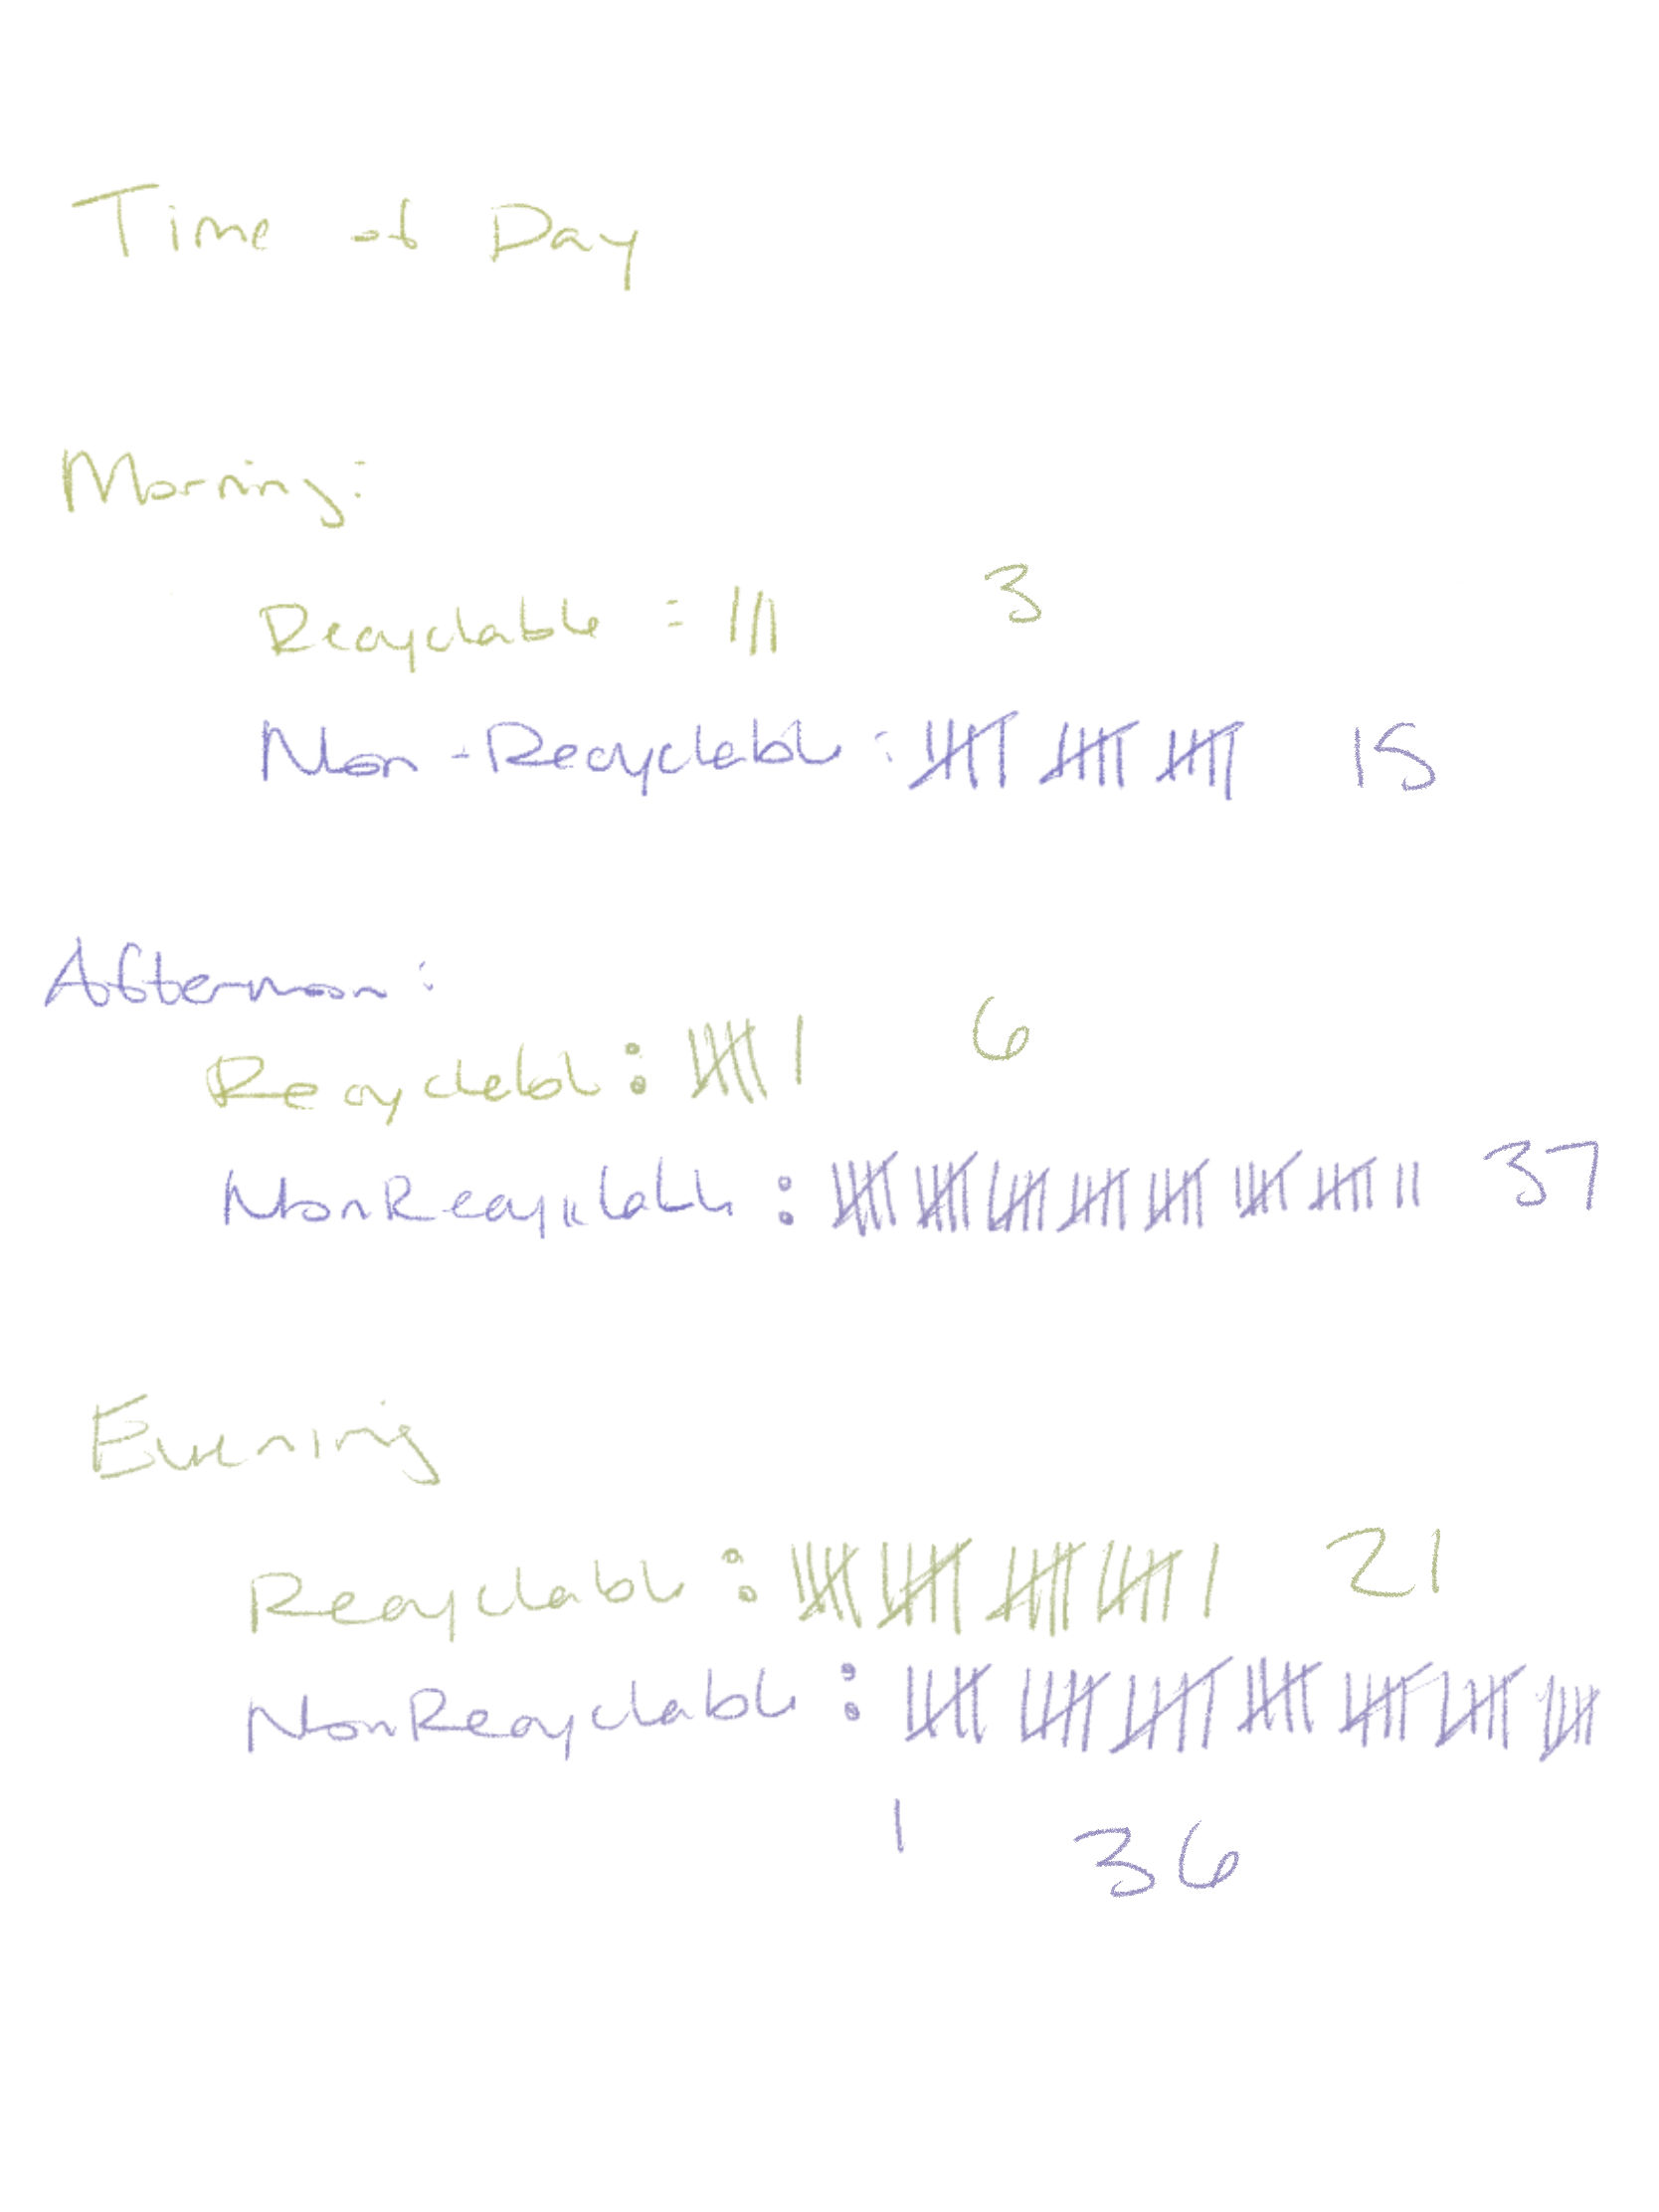 Time of Day
Morning:
Recyclable : ||| 3
Non-Recyclable : 卌 卌 卌 15
Afternoon :
Recyclable : 卌 | 6
NonRecyclable : 卌 卌 卌 卌 卌 卌 卌 || 37
Evening
Recyclable : 卌 卌 卌 卌 | 21
NonRecyclable : 卌 卌 卌 卌 卌 卌 卌
| 36